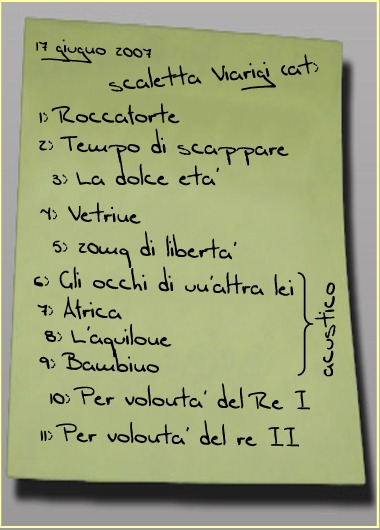 17 giugno 2007
scaletta Viarigi (at)
1) Roccaforte
2) Tempo di scappare
3) La dolce eta'
4) Vetrine
5) 20mq di liberta'
6) Gli occhi di un'altra lei
7) Africa
8) L'aquilone
9) Bambino
acustico
10) Per volonta' del Re I
11) Per volonta' del re II